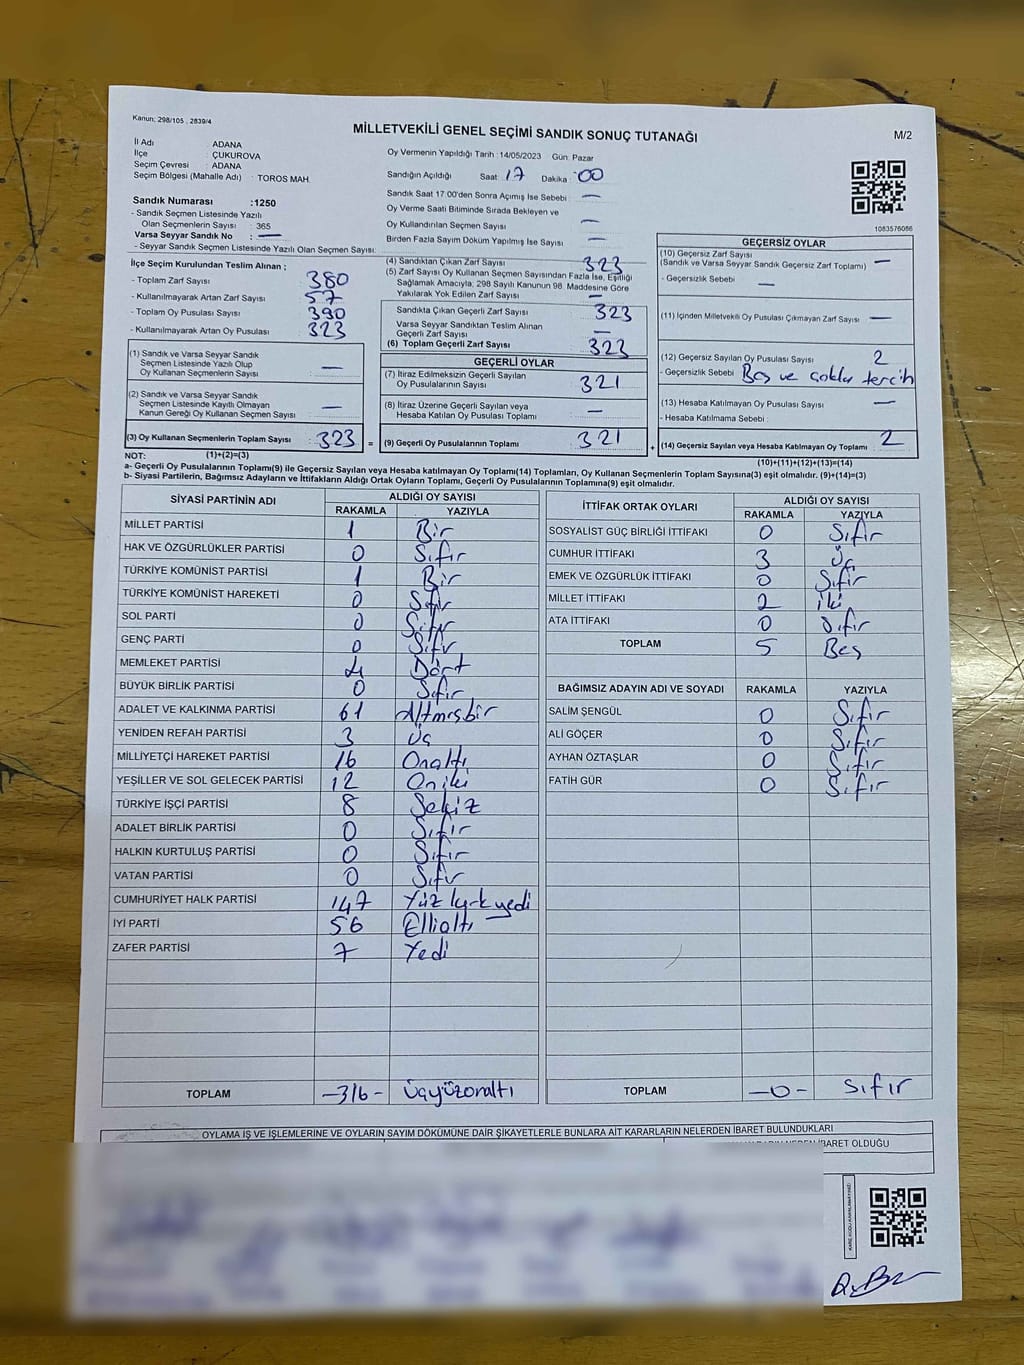 Kanun: 298/105 , 2839/4
MİLLETVEKİLİ GENEL SEÇİMİ SANDIK SONUÇ TUTANAĞI
M/2
İl Adı : ADANA
İlçe : ÇUKUROVA
Seçim Çevresi : ADANA
Seçim Bölgesi (Mahalle Adı) : TOROS MAH.
Sandık Numarası :1250
- Sandık Seçmen Listesinde Yazılı
Olan Seçmenlerin Sayısı : 365
Varsa Seyyar Sandık No : —
- Seyyar Sandık Seçmen Listesinde Yazılı Olan Seçmen Sayısı:
Oy Vermenin Yapıldığı Tarih :14/05/2023 Gün: Pazar
Sandığın Açıldığı Saat : 17 Dakika : 00
Sandık Saat 17:00'den Sonra Açımış İse Sebebi : —
Oy Verme Saati Bitiminde Sırada Bekleyen ve
Oy Kullandırılan Seçmen Sayısı : —
Birden Fazla Sayım Döküm Yapılmış İse Sayısı : —
1083576086
İlçe Seçim Kurulundan Teslim Alınan ;
- Toplam Zarf Sayısı : 380
- Kullanılmayarak Artan Zarf Sayısı : 57
- Toplam Oy Pusulası : 390
- Kullanılmayarak Artan Oy Pusulası : 323
(1) Sandık ve Varsa Seyyar Sandık
Seçmen Listesinde Yazılı Olup
Oy Kullanan Seçmenlerin Sayısı : —
(2) Sandık ve Varsa Seyyar Sandık
Seçmen Listesinde Kayıtlı Olmayan
Kanun Gereği Oy Kullanan Seçmen Sayısı : —
(3) Oy Kullanan Seçmenlerin Toplam Sayısı : 323 =
(1)+(2)=(3)
(4) Sandıktan Çıkan Zarf Sayısı : 323
(5) Zarf Sayısı Oy Kullanan Seçmen Sayısından Fazla İse, Eşitliği
Sağlamak Amacıyla; 298 Sayılı Kanunun 98. Maddesine Göre
Yakılarak Yok Edilen Zarf Sayısı : —
Sandıkta Çıkan Geçerli Zarf Sayısı : 323
Varsa Seyyar Sandıktan Teslim Alınan
Geçerli Zarf Sayısı : —
(6) Toplam Geçerli Zarf Sayısı : 323
GEÇERLİ OYLAR
(7) İtiraz Edilmeksizin Geçerli Sayılan
Oy Pusulalarının Sayısı : 321
(8) İtiraz Üzerine Geçerli Sayılan veya
Hesaba Katılan Oy Pusulası Toplamı : —
(9) Geçerli Oy Pusulalarının Toplamı : 321 +
GEÇERSİZ OYLAR
(10) Geçersiz Zarf Sayısı
(Sandık ve Varsa Seyyar Sandık Geçersiz Zarf Toplamı) : —
- Geçersizlik Sebebi : —
(11) İçinden Milletvekili Oy Pusulası Çıkmayan Zarf Sayısı : —
(12) Geçersiz Sayılan Oy Pusulası Sayısı : 2
- Geçersizlik Sebebi : Boş ve çoklu tercih
(13) Hesaba Katılmayan Oy Pusulası Sayısı : —
- Hesaba Katılmama Sebebi :
(14) Geçersiz Sayılan veya Hesaba Katılmayan Oy Toplamı : 2
(10)+(11)+(12)+(13)=(14)
NOT:
a- Geçerli Oy Pusulalarının Toplamı(9) ile Geçersiz Sayılan veya Hesaba katılmayan Oy Toplamı(14) Toplamları, Oy Kullanan Seçmenlerin Toplam Sayısına(3) eşit olmalıdır. (9)+(14)=(3)
b- Siyasi Partilerin, Bağımsız Adayların ve İttifakların Aldığı Ortak Oyların Toplamı, Geçerli Oy Pusulalarının Toplamına(9) eşit olmalıdır.
SİYASİ PARTİNİN ADI ALDIĞI OY SAYISI
RAKAMLA YAZIYLA
MİLLET PARTİSİ 1 Bir
HAK VE ÖZGÜRLÜKLER PARTİSİ 0 Sıfır
TÜRKİYE KOMÜNİST PARTİSİ 1 Bir
TÜRKİYE KOMÜNİST HAREKETİ 0 Sıfır
SOL PARTİ 0 Sıfır
GENÇ PARTİ 0 Sıfır
MEMLEKET PARTİSİ 4 Dört
BÜYÜK BİRLİK PARTİSİ 0 Sıfır
ADALET VE KALKINMA PARTİSİ 61 Altmışbir
YENİDEN REFAH PARTİSİ 3 Üç
MİLLİYETÇİ HAREKET PARTİSİ 16 Onaltı
YEŞİLLER VE SOL GELECEK PARTİSİ 12 Oniki
TÜRKİYE İŞÇİ PARTİSİ 8 Sekiz
ADALET BİRLİK PARTİSİ 0 Sıfır
HALKIN KURTULUŞ PARTİSİ 0 Sıfır
VATAN PARTİSİ 0 Sıfır
CUMHURİYET HALK PARTİSİ 147 Yüz kırk yedi
İYİ PARTİ 56 Ellialtı
ZAFER PARTİSİ 7 Yedi
TOPLAM —316— Üçyüzonaltı
İTTİFAK ORTAK OYLARI ALDIĞI OY SAYISI
RAKAMLA YAZIYLA
SOSYALİST GÜÇ BİRLİĞİ İTTİFAKI 0 Sıfır
CUMHUR İTTİFAKI 3 Üç
EMEK VE ÖZGÜRLÜK İTTİFAKI 0 Sıfır
MİLLET İTTİFAKI 2 İki
ATA İTTİFAKI 0 Sıfır
TOPLAM 5 Beş
BAĞIMSIZ ADAYIN ADI VE SOYADI RAKAMLA YAZIYLA
SALİM ŞENGÜL 0 Sıfır
ALİ GÖÇER 0 Sıfır
AYHAN ÖZTAŞLAR 0 Sıfır
FATİH GÜR 0 Sıfır
TOPLAM —0— Sıfır
OYLAMA İŞ VE İŞLEMLERİNE VE OYLARIN SAYIM DÖKÜMÜNE DAİR ŞİKAYETLERLE BUNLARA AİT KARARLARIN NELERDEN İBARET BULUNDUKLARI
İBARET OLDUĞU